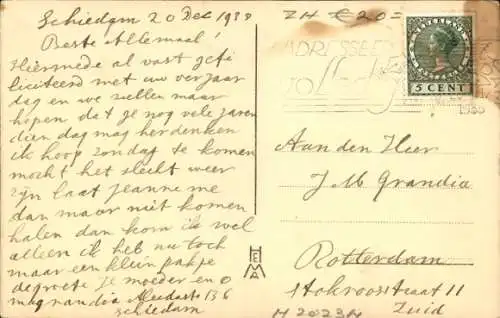 Schiedam 20 Dec 1938
Beste Allemaal!
Hiermede al vast gefi
liciteerd met uw verjaar
dag en we zullen maar
hopen dat je nog vele jaren
dien dag mag herdenken
ik hoop zondag te komen
mocht het slecht weer
zijn laat jeanne me
dan maar niet komen
halen dan kom ik wel
alleen ik heb nu toch
maar een klein pakje
de groete je moeder en o
ma grandia Aleidastr 136
schiedam
HEMA
ZH € 20=
ADRESSEER
5 CENT
Aan den Heer
J M Grandia
Rotterdam
Stokroosstraat 11
Zuid
H 2023H